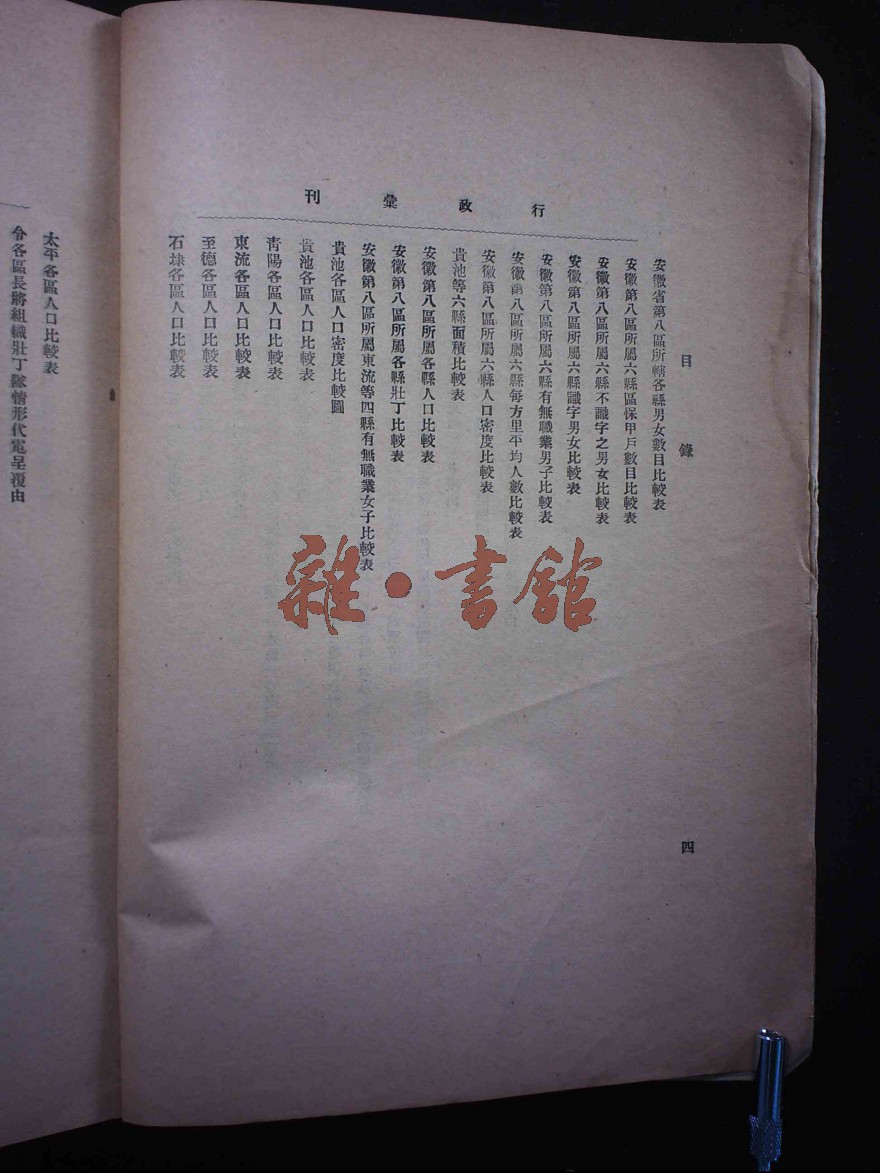 行政彙刊
目錄
四
安徽省第八區所轄各縣男女數目比較表
安徽第八區所屬六縣區保甲戶數目比較表
安徽第八區所屬六縣不識字之男女比較表
安徽第八區所屬六縣識字男女比較表
安徽第八區所屬六縣有無職業男子比較表
安徽第八區所屬六縣每方里平均人數比較表
安徽第八區所屬六縣人口密度比較表
貴池等六縣面積比較表
安徽第八區所屬各縣人口比較表
安徽第八區所屬各縣壯丁比較表
安徽第八區所屬東流等四縣有無職業女子比較表
貴池各區人口密度比較圖
貴池各區人口比較表
青陽各區人口比較表
東流各區人口比較表
至德各區人口比較表
石埭各區人口比較表
太平各區人口比較表
令各區長將組織壯丁隊情形代電呈覆由
雜·書館